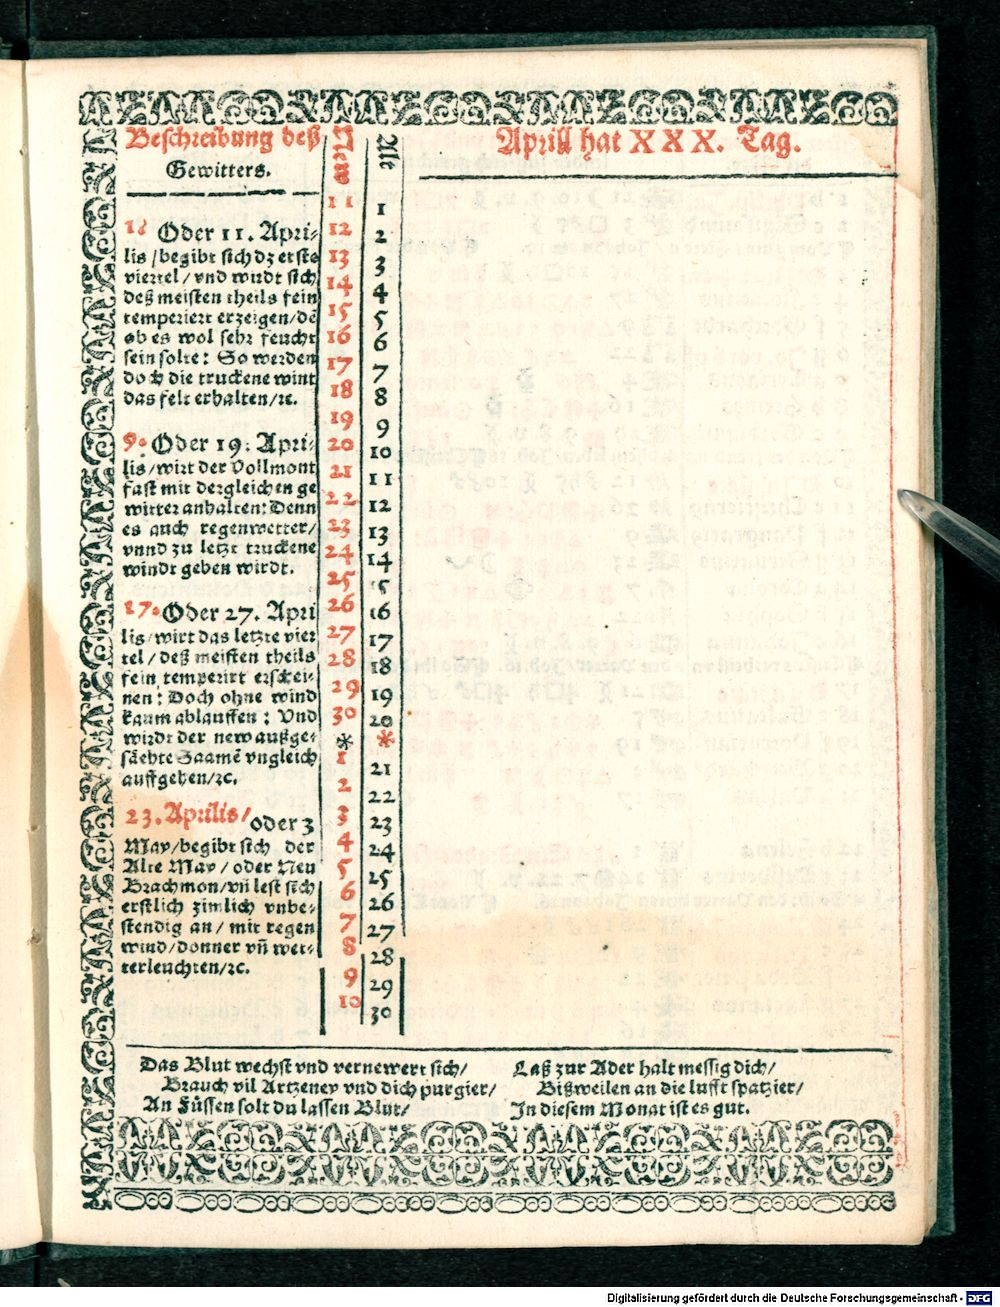 Beschreibung deß
Gewitters.
New
Alt
Aprill hat XXX. Tag.
1 Oder 11. Apri-
lis / begibt sich dz erste
viertel / vnd wirdt sich
deß meisten theils fein
temperiert erzeigen / dē
ob es wol sehr feucht
sein solte: So werden
doch die truckene wint
das felt erhalten / ꝛc.
9. Oder 19. Apri-
lis / wirt der Vollmont
fast mit dergleichen ge
witter anhalten: Denn
es auch regenwetter /
vnnd zu letzt truckene
windt geben wirdt.
17. Oder 27. Apri
lis / wirt das letzte vier
tel / deß meisten theils
fein temperirt erschei-
nen: Doch ohne wind
kaum ablauffen: Vnd
wirdt der new außge-
säehte Saamē vngleich
auffgehen / ꝛc.
23. Aprilis / oder 3
May / begibt sich der
Alte May / oder Neu
Brachmon / vñ lest sich
erstlich zimlich vnbe-
stendig an / mit regen
wind / donner vñ wet-
terleuchten / ꝛc.
11 1
12 2
13 3
14 4
15 5
16 6
17 7
18 8
19 9
20 10
21 11
22 12
23 13
24 14
25 15
26 16
27 17
28 18
29 19
30 20
* *
1 21
2 22
3 23
4 24
5 25
6 26
7 27
8 28
9 29
10 30
Das Blut wechst vnd vernewert sich /
Brauch vil Artzeney vnd dich purgier /
An Füssen solt du lassen Blut /
Laß zur Ader halt messig dich /
Bißweilen an die lufft spatzier /
In diesem Monat ist es gut.
Digitalisierung gefördert durch die Deutsche Forschungsgemeinschaft - DFG